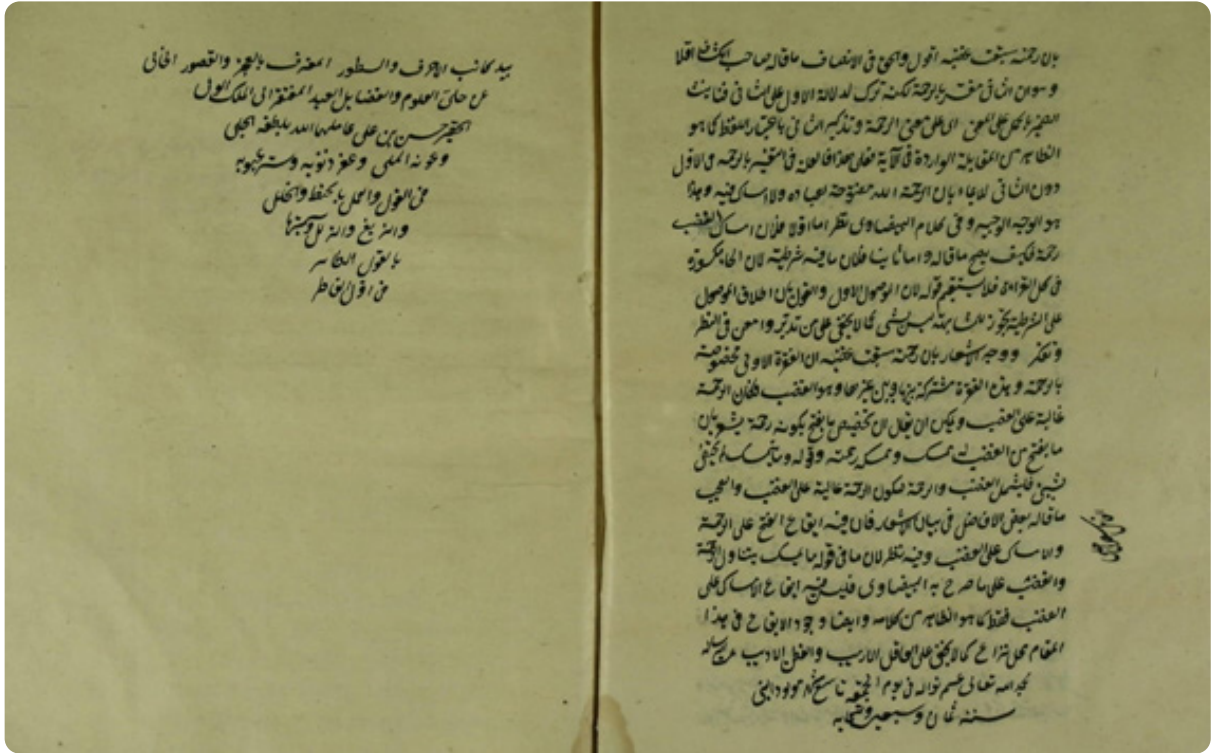 بان رحمته سبقت غضبه اقول والحق فى الانصاف ما قاله صاحب الكشاف اولا
وهو ان الثانى مفسر بالرحمة لكنه ترك لدلالة الاول على الثانى فتانيث
الضمير بالحمل على المعنى اى على معنى الرحمة وتذكير الثانى باعتبار اللفظ كما هو
الظاهر من المقابلة الواردة فى الآية فعلى هذا فالعلة فى التفسير بالرحمة فى الاول
دون الثانى للايماء بان الرحمة الله مفتوحة لعباده ولا امساك فيه وهذا
هو الوجه الوجيه وفى كلام البيضاوى نظر اما اولا فلان امساك الغضب
رحمة فكيف يصح ما قاله واما ثانيا فلان ما فيه شرطية لان الحا مكسورة
فى كل القراءة فلا يستقيم قوله لان الموصول الاول والقول بان اطلاق الموصول
على الشرطية يجوز للمشابهة ليس بشى كما لا يخفى على من تدبر وامعن فى النظر
وتفكر ووجه الاشعار بان رحمته سبقت غضبه ان الفقرة الاولى مخصوصة
بالرحمة وهذه الفقرة مشتركة بينها وبين غيرها وهو الغضب فكان الرحمة
غالبة على الغضب ويمكن ان يقال ان تخصيص ما يفتح بكونه رحمة يشعر بان
ما يفتح من الغضب له ممسك وممسكه رحمته وقوله وما يمسك لا يختص
بشيئ فليشمل الغضب والرحمة لتكون الرحمة غالبة على الغضب والعجب
ما قاله بعض الافاضل فى بيان الاشعار فان فيه ايقاع الفتح على الرحمة
والامساك على الغضب وفيه نظر لان ما فى قوله ما يمسك يتناول الرحمة
والغضب على ما صرح به البيضاوى فليس فيه ايقاع الامساك على
الغضب فقط كما هو الظاهر من كلامه وايضا وجود الايقاع فى هذا
المقام محل نزاع كما لا يخفى على العاقل الاريب والفطن الاديب تمت الرسالة
بحمد الله تعالى عم نواله فى يوم الجمعة تاسع مولود النبى
سنة ثمان وسبعين
بيد كاتب الاحرف والسطور المعترف بالعجز والقصور الخالى
عن حلى العلوم والفضايل العبد المفتقر الى الملك الولى
الحقير حسن بن على عاملهما الله بلطفه الجلى
وعونه الملى وغفر ذنوبه وستر عيوبه
فى القول والعمل بالحفظ والخلل
والزيغ والزلل
بالقول الظاهر
من اقول الخاطر